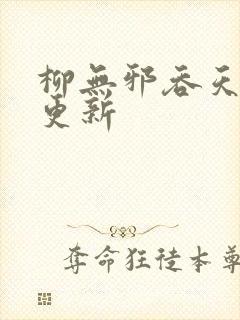 柳無邪吞天
更新
奪命狂徒本尊